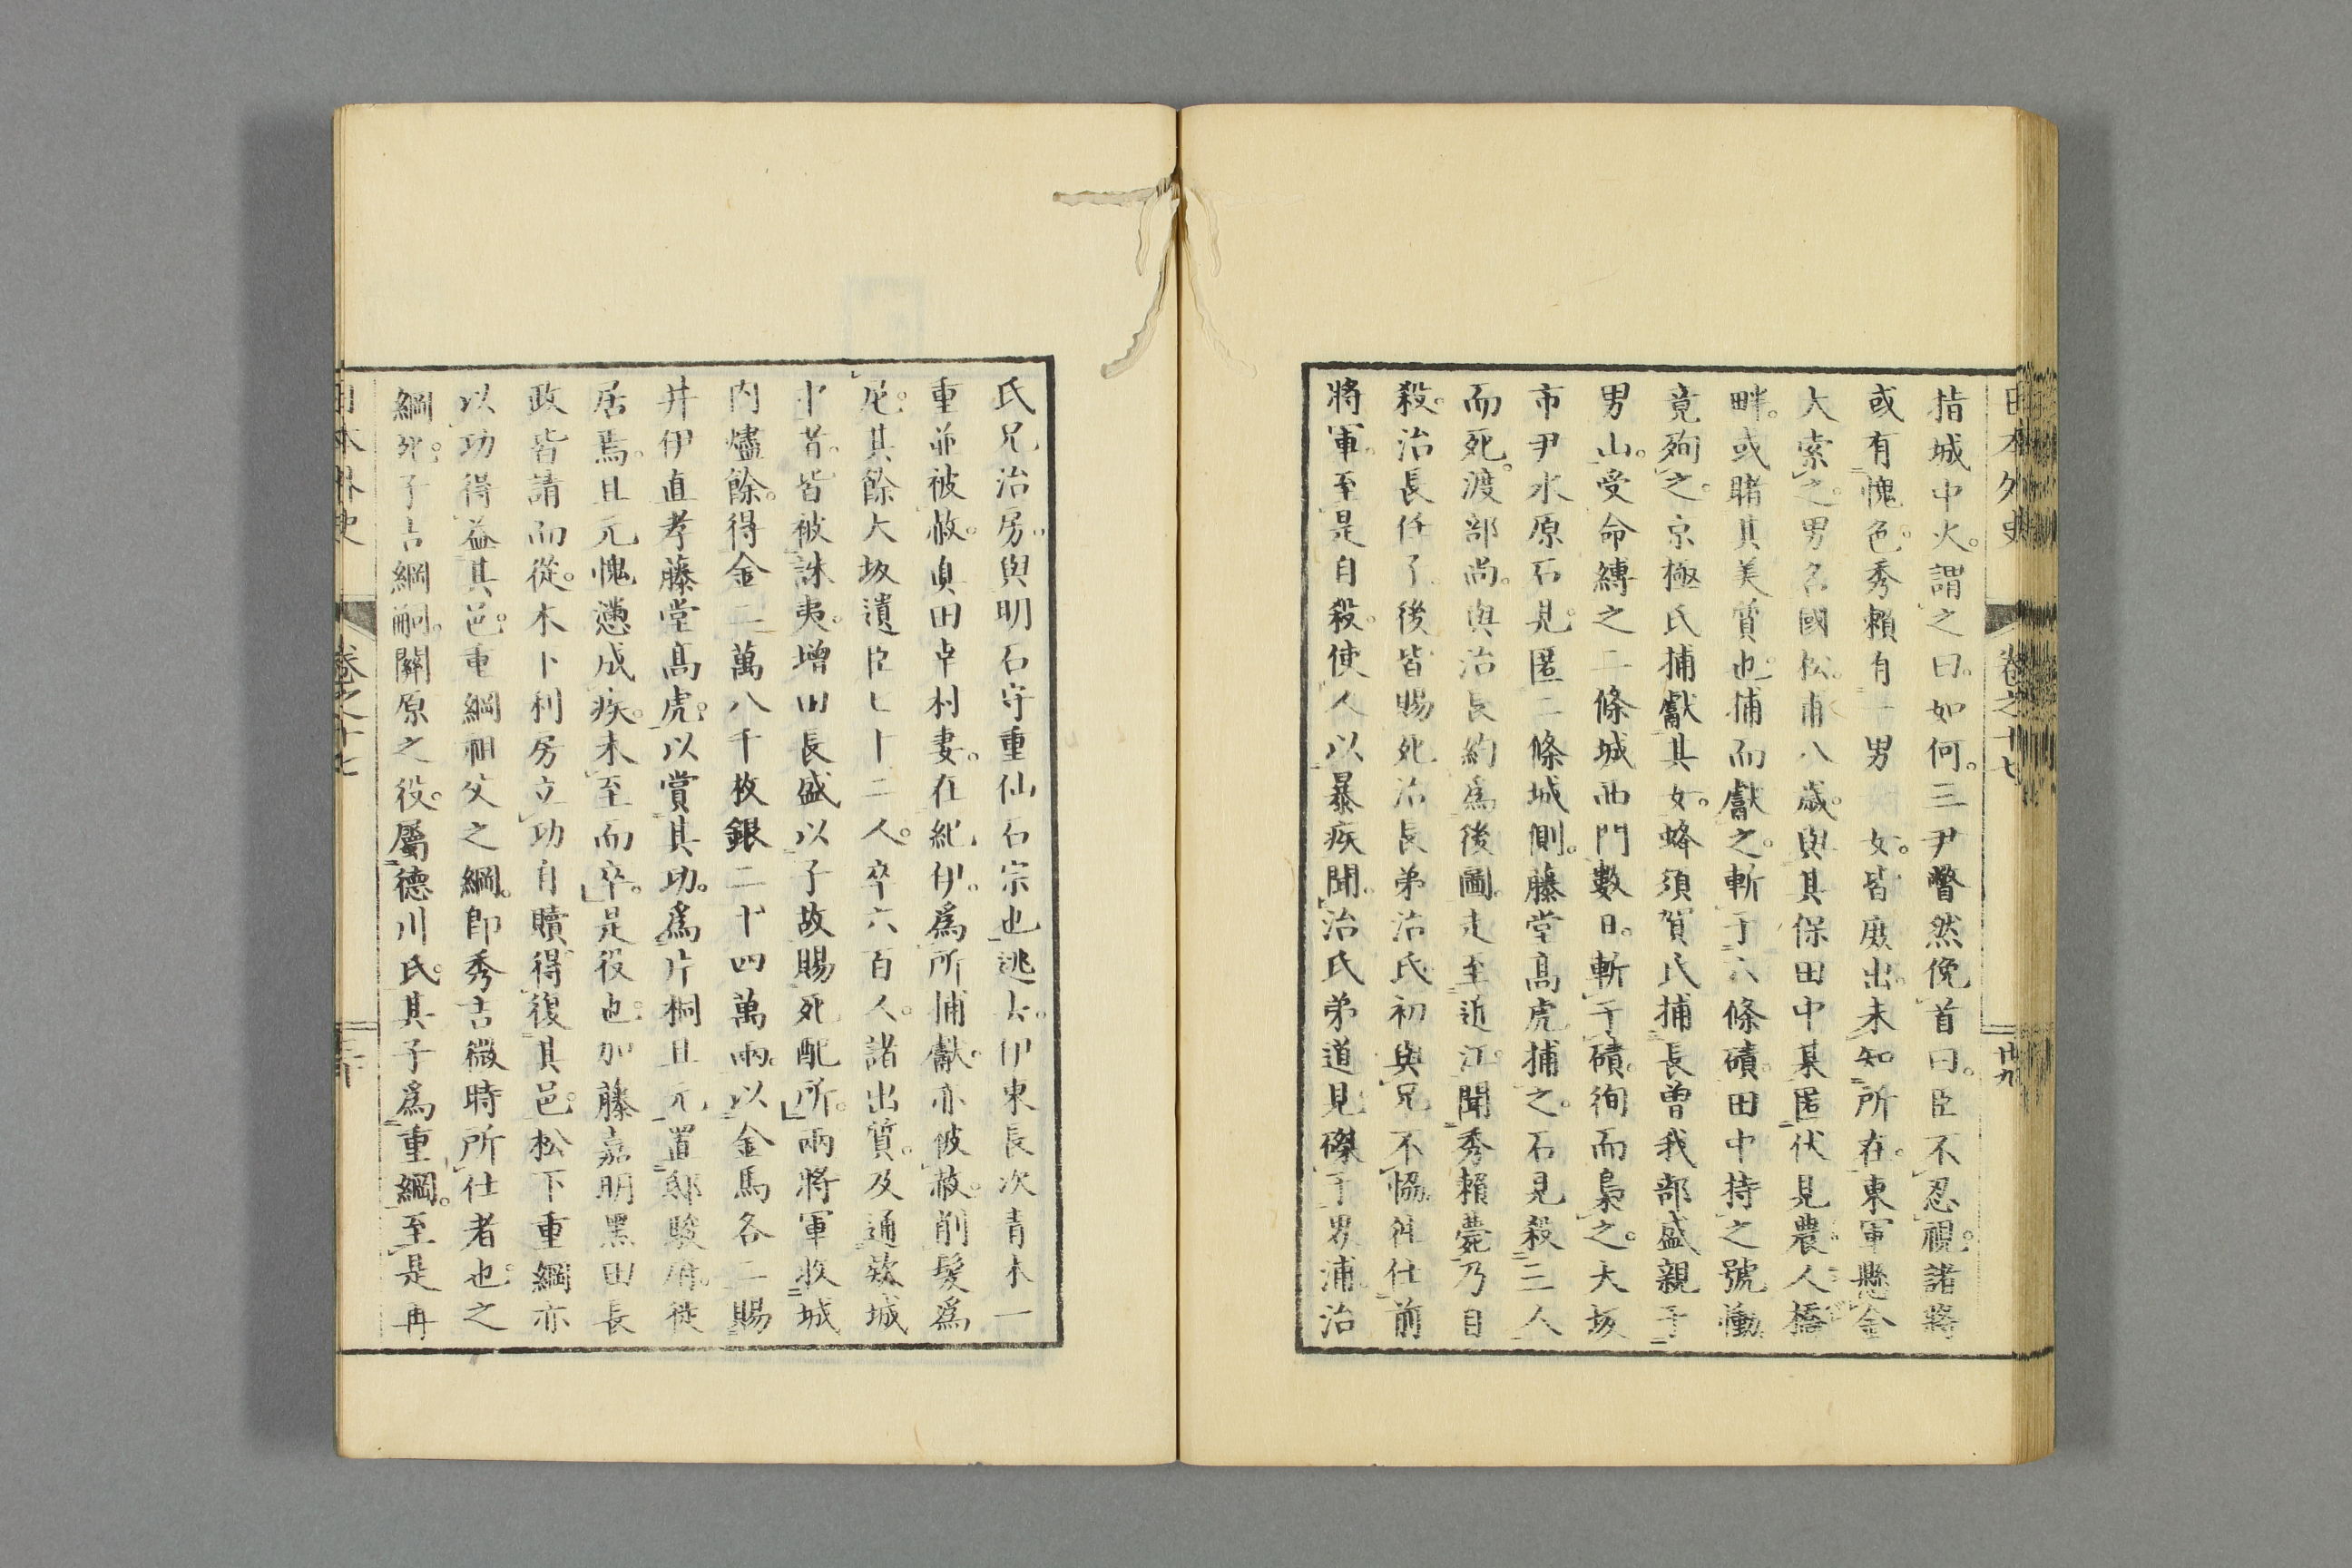 日本外史　卷之十七　廿九
指城中火。謂之曰。如何。三尹瞥然俛首曰。臣不忍視。諸將
或有愧色。秀賴有一男一女。皆庶出。未知所在。東軍懸金
大索之。男名國松。甫八歲。與其保田中某匿伏見農人橋
畔。或睹其美質也。捕而獻之。斬于六條磧。田中持之號慟
竟殉之。京極氏捕獻其女。蜂須賀氏捕長曾我部盛親于
男山。受命縛之二條城西門數日。斬于磧。徇而梟之。大坂
市尹水原石見。匿二條城側。藤堂高虎捕之。石見殺三人
而死。渡部尚。與治長約為後圖。走至近江。聞秀賴薨。乃自
殺。治長任子。後皆賜死。治長弟治氏初與兄不協。舛仕前
將軍。至是自殺。使人以暴疾聞。治氏弟道見磔于界浦。治
氏兄治房。與明石守重仙石宗也逃去。伊東長次青木一
重並被赦。眞田幸村妻。在紀伊。爲所捕獻。亦被赦。削髮爲
尼。其餘大坂遺臣七十二人。卒六百人。諸出質。及通欵城
中者。皆被誅夷。增田長盛以子故賜死配所。兩將軍收城
内燼餘。得金二萬八千枚銀二十四萬兩。以金馬各二賜
井伊直孝藤堂高虎。以賞其功。爲片桐且元置邸駿府。徙
居焉。且元愧懣成疾。未至而卒。是役也。加藤嘉明黑田長
政皆請而從。木下利房立功自贖。得復其邑。松下重綱亦
以功得益其邑。重綱祖父之綱。即秀吉微時所仕者也。之
綱死。子吉綱嗣。關原之役。屬德川氏。其子爲重綱。至是再
日本外史　卷之十七　三十